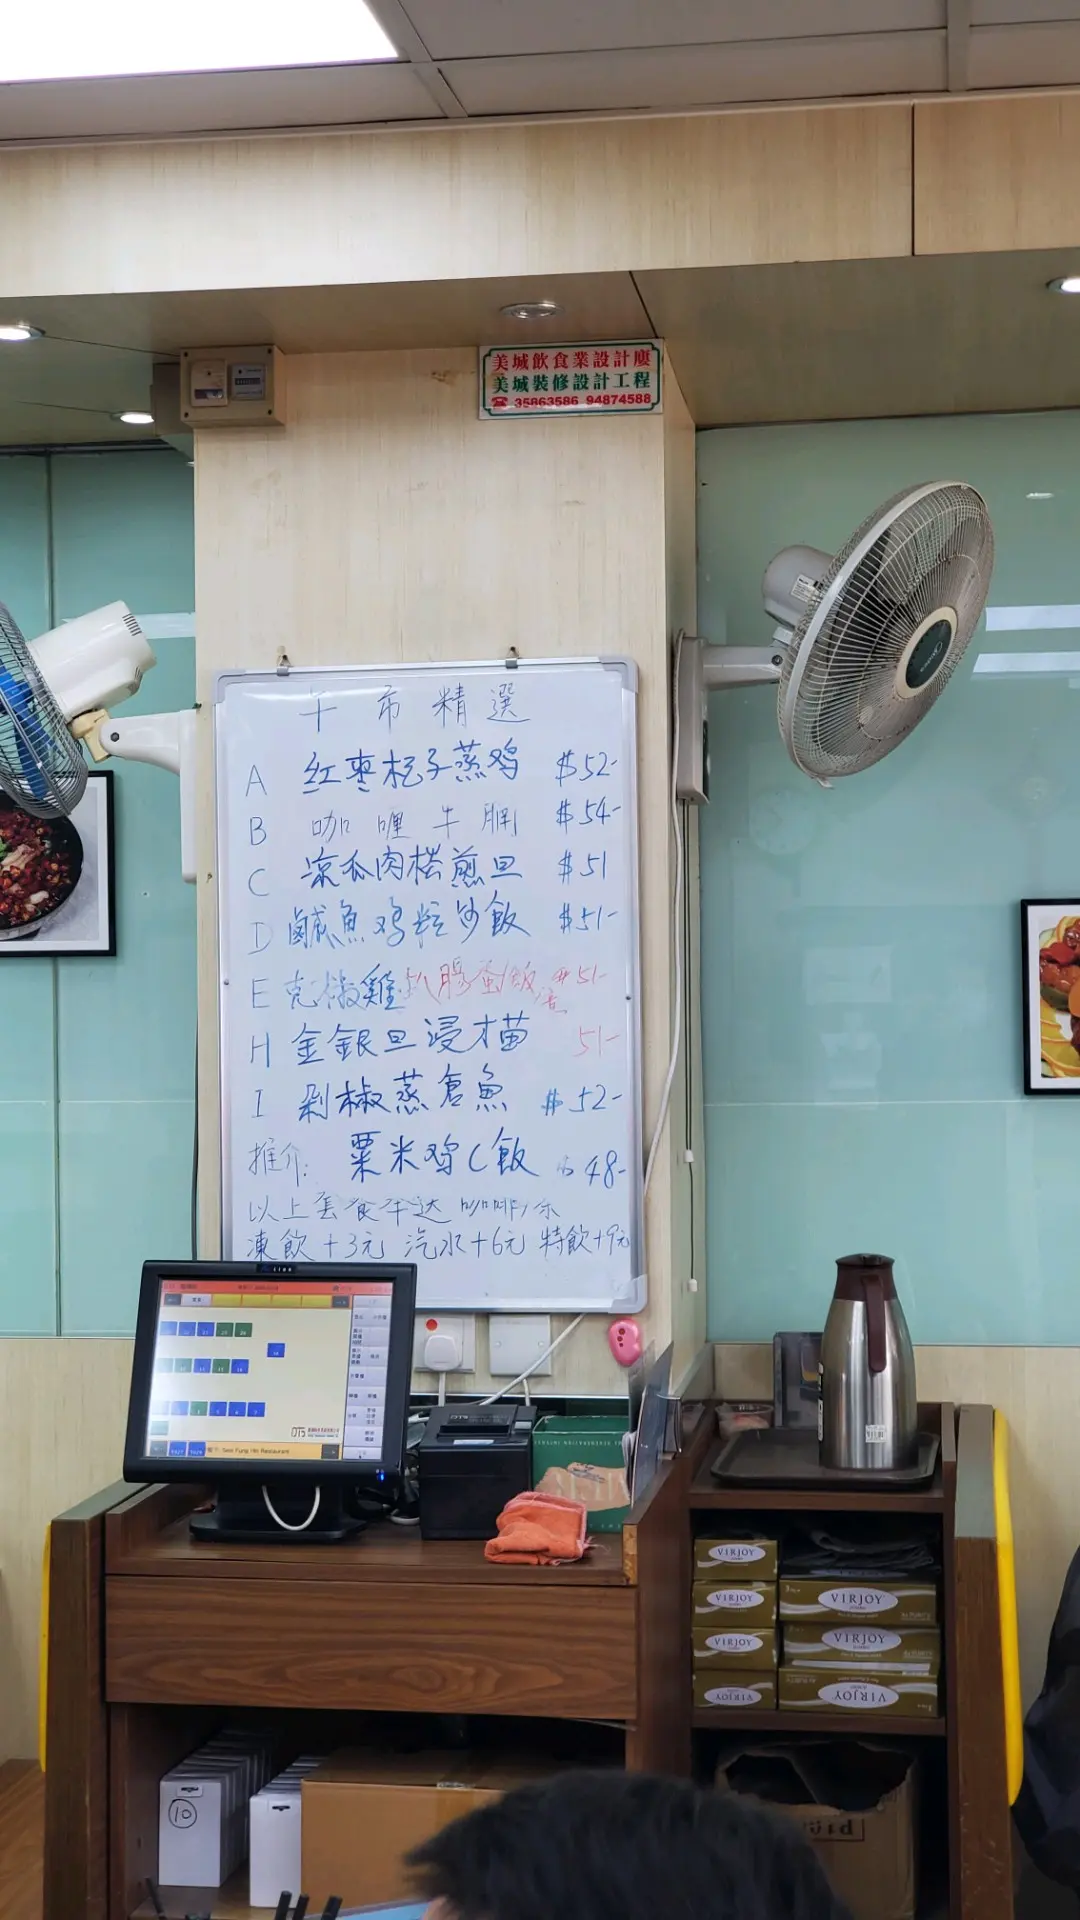 美城飲食業設計廈
美城裝修設計工程
☎ 35863586 94874588
午市精選
A 红枣杞子蒸鸡 $52-
B 咖喱牛腩 $54-
C 凉瓜肉松煎旦 $51
D 鹹魚鸡粒炒飯 $51-
E 雞扒腸蛋飯 $51-
H 金銀旦浸才苗 51-
I 剁椒蒸倉魚 $52-
推介: 粟米鸡C飯 48-
以上套食 咖啡/茶
凍飲+3元 汽水+6元 特飲+9元
DTS
Seei Fung Hin Restaurant
DTS
VIRJOY
VIRJOY
VIRJOY
VIRJOY
VIRJOY
VIRJOY
VIRJOY
10